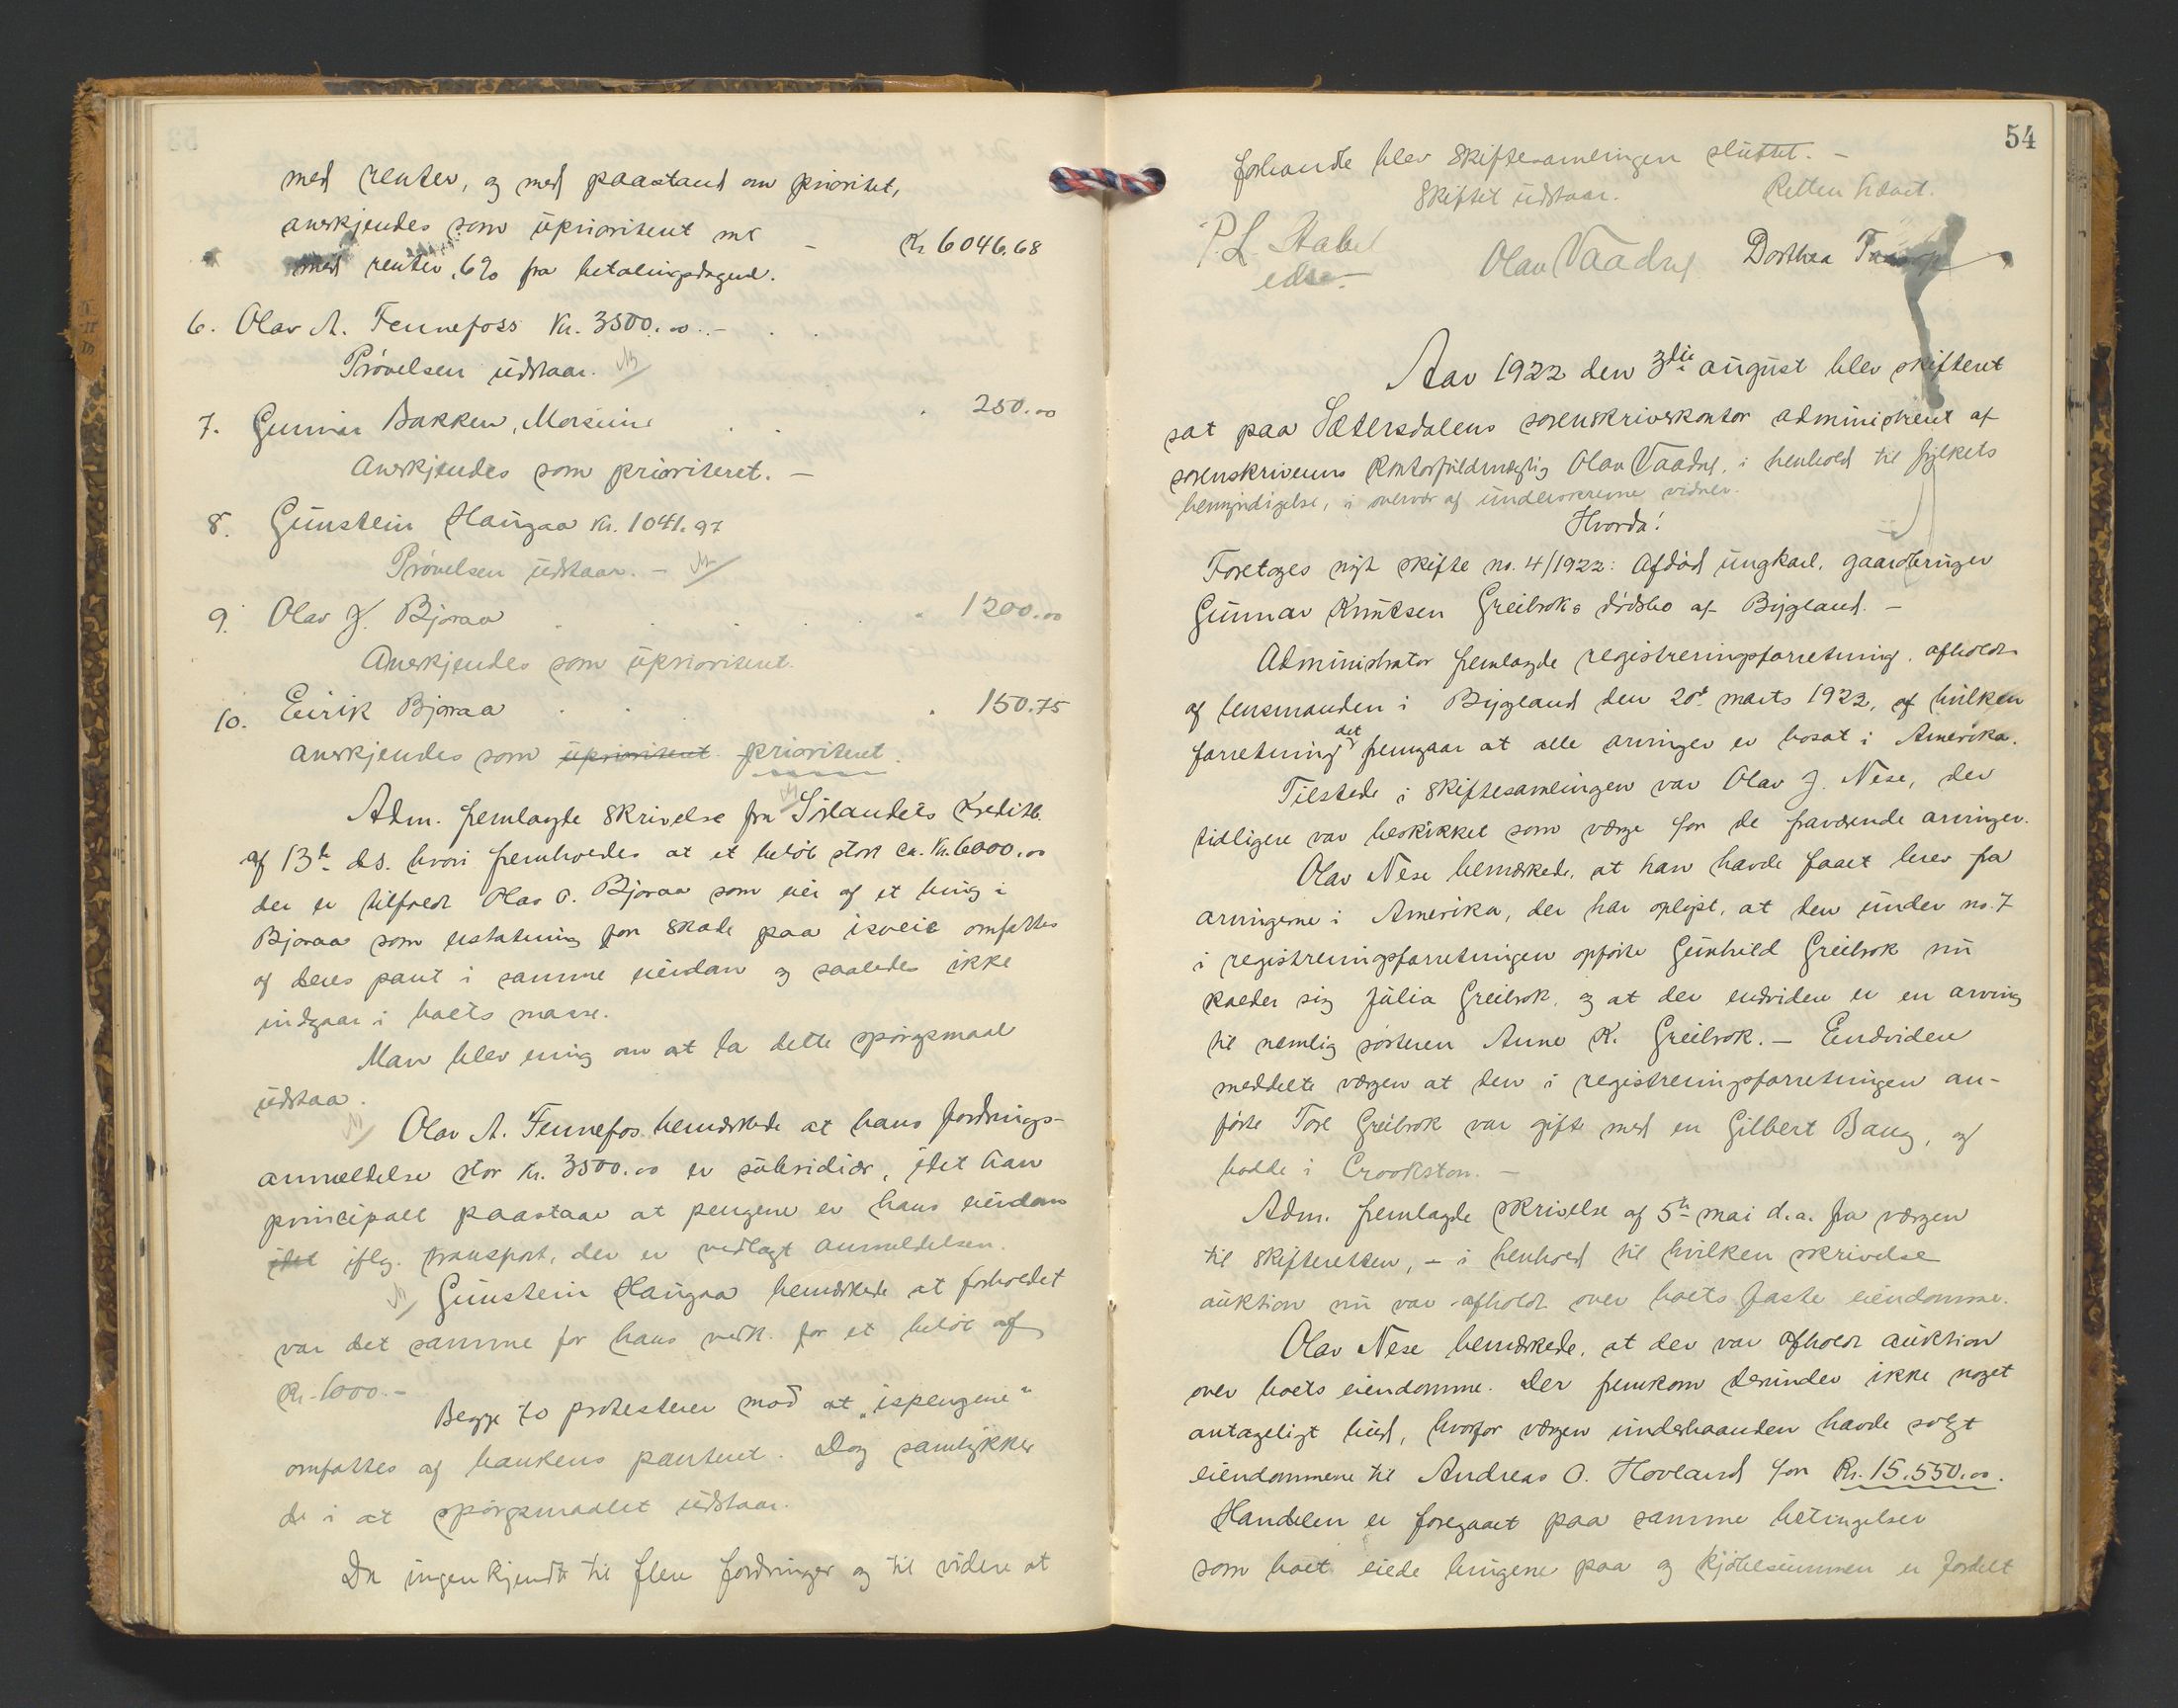 med renter, og med paastand om prioritet,
anerkjendes som uprioritert mc - Kr. 6046,68
med renter 6% fra betalingsdagene.
6. Olav A. Fennefoss kr. 3500.00. -
Prøvelsen utstaar.
7. Gunnar Bakken, Moseime . 250.00
Anerkjendes som prioriteret. -
8. Gunstein Haugaa kr. 1041.97
Prøvelsen utstaar. -
9. Olav J. Bjoraa . 1200.00
Anerkjendes som uprioritert.
10. Eirik Bjoraa . 150.75
anerkjendes som uprioritert prioritert.
Adm. fremlagde skrivelse fra Sørlandets Kreditb.
af 13de ds. hvori fremholdes at et beløb stort ca. kr. 6000.00
der er tilfaldt Olav O. Bjoraa som eier af et bruk i
Bjoraa som erstatning for skade paa isveie omfattes
af deres pant i samme eiendom og saaledes ikke
indgaar i boets masse.
Man blev enig om at la dette spørgsmaal
utstaa.
Olav A. Fennefos bemerkede at hans fordrings-
anmeldelse stor kr. 3500.00 er subsidiær, idet han
principalt paastaar at pengene er hans eiendom
idet iflg. transport, der er vedlagt anmeldelsen.
Gunstein Haugaa bemerkede at forholdet
var det samme for hans vedk. for et beløb af
Kr. 1000.-
Begge to protesterer mod at "ispengene"
omfattes af bankens panteret. Dog samtykker
de i at spørgsmaalet utstaar.
Da ingen kjendte til flere fordringer og til videre at
54
forhandle blev skiftesamlingen sluttet. -
Skiftet utstaar. Retten hævet.
P. L. Stabel
eds.
Olav Vaadne Dorthea
Aar 1922 den 3die august blev skifteret
sat paa Sætersdalens sorenskriverkontor administrert af
sorenskriverens kontorfuldmægtig Olav Vaadne, i henhold til fylkets
bemyndigelse, i overvær af underskrevne vidner.
Hvorda!
Foretoges nyt skifte no. 4/1922: Afdød ungkarl, gaardbruger
Gunnar Knutsen Greibroks dødsbo af Bygland. -
Administrator fremlagde registreringsforretning, afholdt
af lensmanden i Bygland den 20de marts 1922, af hvilken
forretning det fremgaar at alle arvinger er bosat i Amerika.
Tilstede i skiftesamlingen var Olav J. Nese, der
tidligere var beskikket som værge for de fraværende arvinger.
Olav Nese bemerkede, at han havde faaet brev fra
arvingerne i Amerika, der har oplyst, at den under no. 7
i registreringsforretningen opførte Gunhild Greibrok nu
kalder sig Julia Greibrok, og at der endvidere er en arving
til nemlig søsteren Anne K. Greibrok. - Endvidere
meddelte værgen at den i registreringsforretningen an-
førte Tore Greibrok var gift med en Gilbert Baug, og
bodde i Crookston. -
Adm. fremlagde skrivelse af 5te mai d.a. fra værgen
til skifteretten, - i henhold til hvilken skrivelse
auktion nu var afholdt over boets faste eiendomme.
Olav Nese bemerkede, at der var afholdt auktion
over boets eiendomme. Der fremkom derunder ikke noget
antageligt bud, hvorfor værgen underhaanden havde solgt
eiendommene til Andreas O. Hovland for Kr. 15.550.00.
Handelen er foregaaet paa samme betingelser
som boet eiede brugene paa og kjøbesummen er fordelt